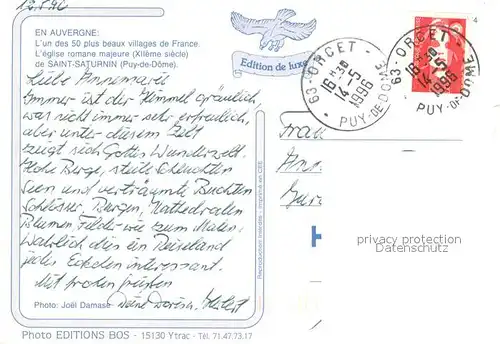 12.5.96
EN AUVERGNE:
L'un des 50 plus beaux villages de France.
L'église romane majeure (XIIème siècle)
de SAINT-SATURNIN (Puy-de-Dôme).
Edition de luxe
63-ORCET-
16H30
14-5
1996
PUY-DE-DOME
63-ORCET-
16H30
14-5
1996
PUY-DE-DOME
4
Liebe Annemarie
Immer ist der Himmel gräulich,
was nicht immer sehr erfreulich,
aber unter diesem Zelt
zeigt sich Gottes Wunderwelt.
Hohe Berge, steile Schluchten
Seen und verträumte Buchten
Schlösser, Burgen, Kathedralen
Blumen Felder wie zum Malen.
Wahrlich dies ein Reiseland
jede Ecken interessant.
Mit frohen grüssen
Deine Doris u. Herbert
Frau
Photo: Joël Damase
Reproduction interdite - Imprimé en CEE
privacy protection
Datenschutz
Photo EDITIONS BOS - 15130 Ytrac - Tél. 71.47.73.17